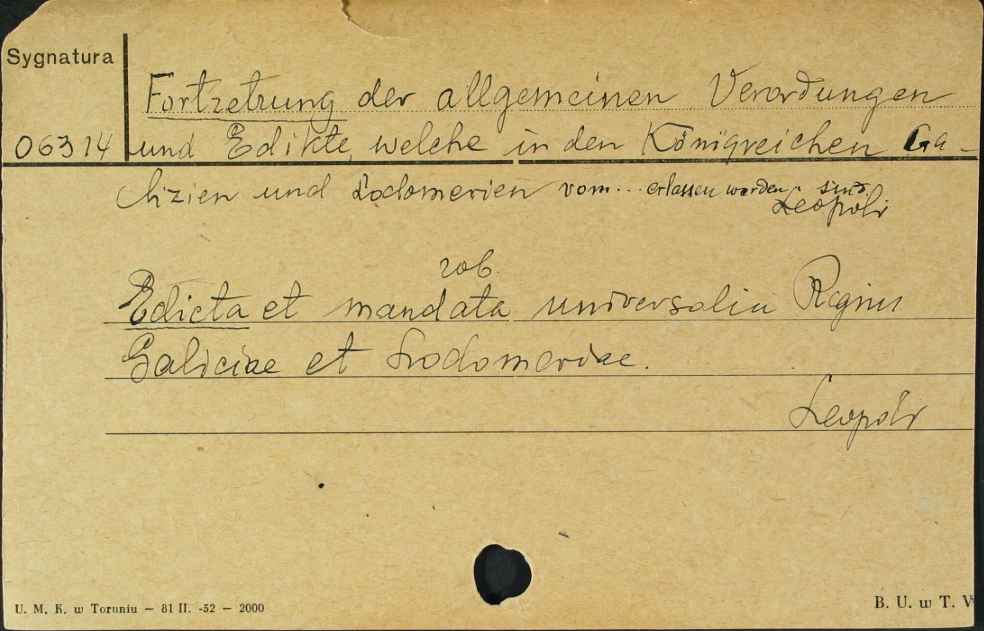 Sygnatura
Fortzetzung der allgemeinen Verordungen
06314 und Edikte, welche in den Königreichen Ga-
lizien und Lodomerien vom... erlassen worden sind.
Leopoli
zob.
Edicta et mandata universalia Regnis
Galiciae et Lodomeriae.
Leopoli
U. M. K. w Toruniu — 81 II. -52 — 2000
B. U. w T. W